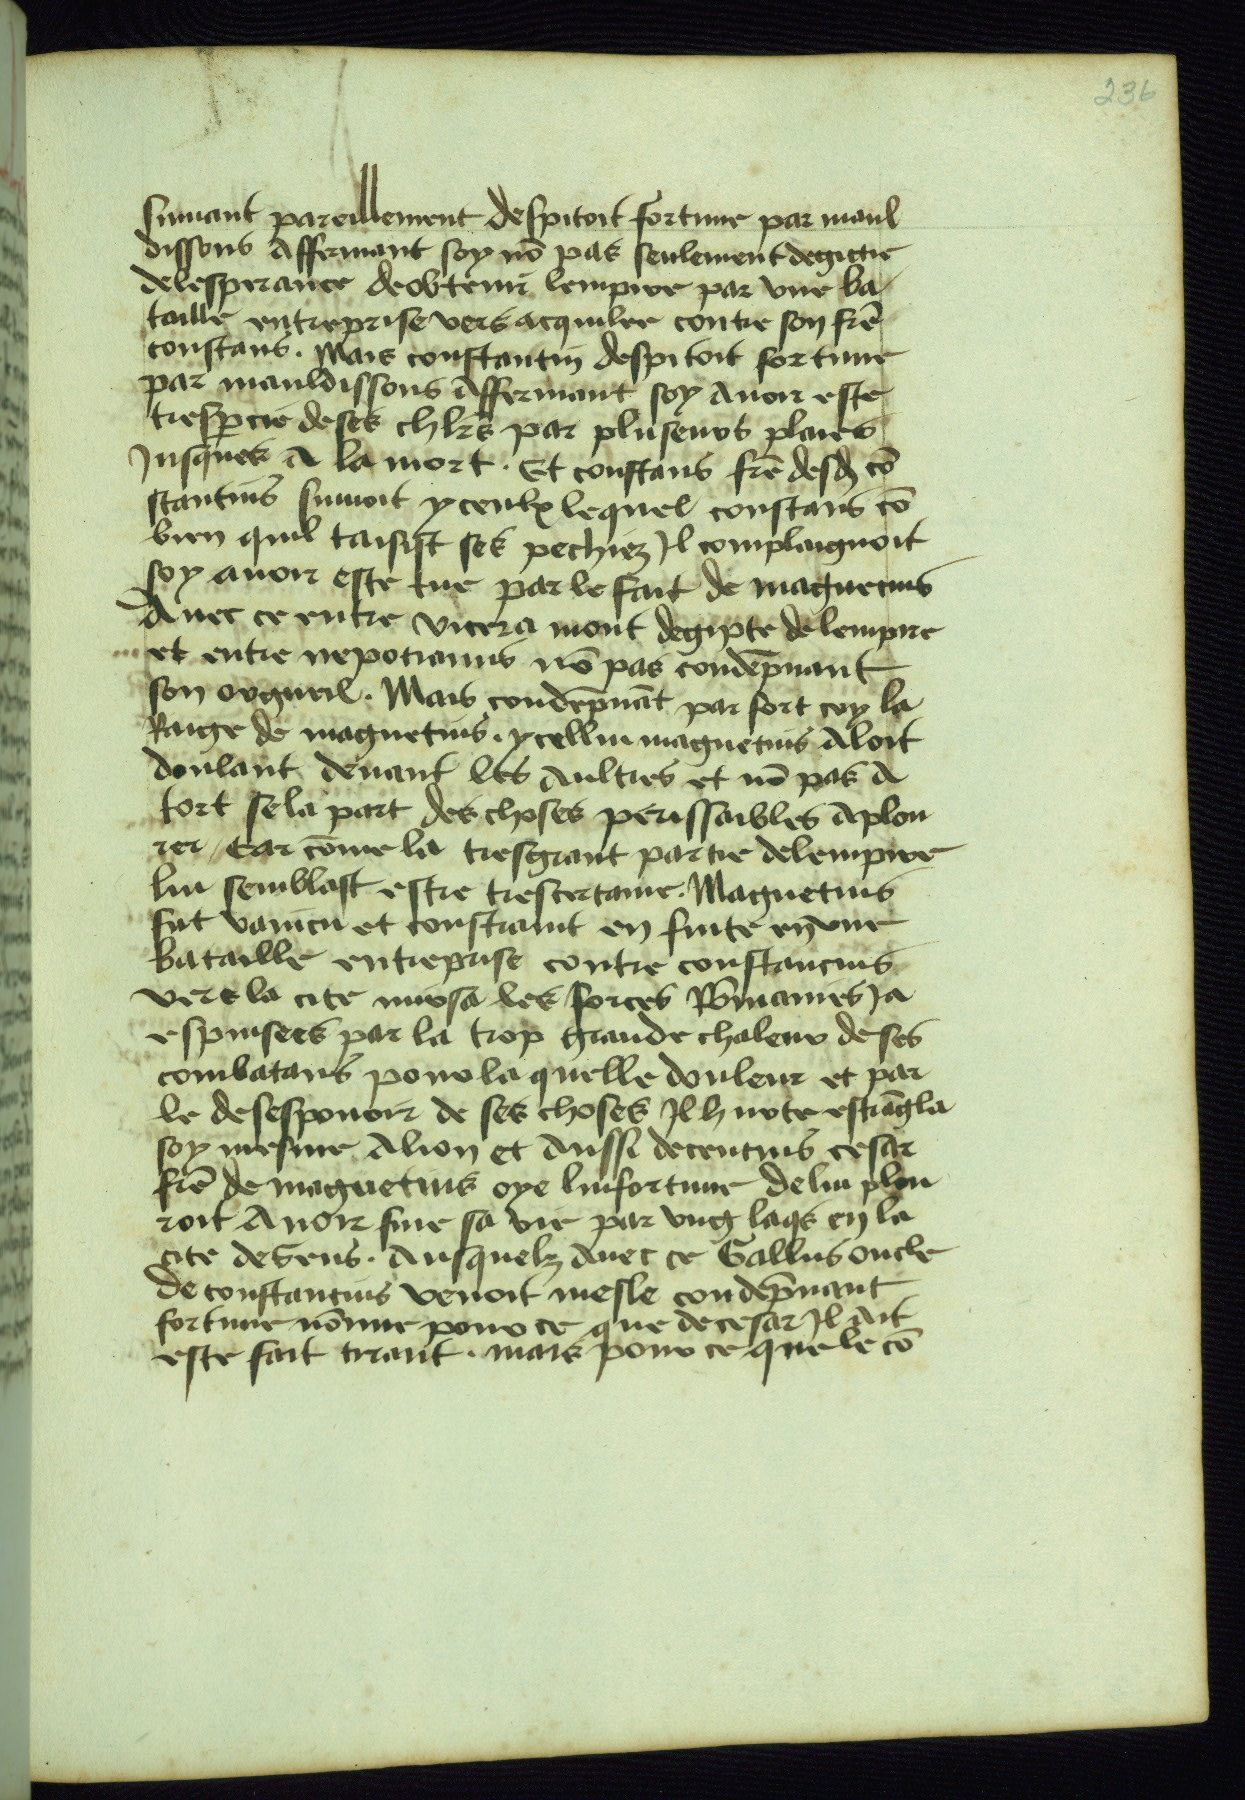 236
suiuant pareillement despitoit fortune par maul
dissons Affermant soy nō pas seulement degictie
delesperance deobtenir lempire par vne ba
taille entreprise vers acquilee contre son frē
constans. Mais constantin despitoit fortune
par mauldissons Affermant soy Auoir este
tresp̄cie deses chlr̄s par pluseurs plaies
Jusques A la mort. Et constans frē desd cō
stantins suiuoit yceulx lequel constans cō
bien quil taisist ses pechiez Jl complaignoit
soy auoir este tue par le fait de magnecius
Auec ce entre vicera mont degipte de lempire
et entre nepotianus nō pas condēpnant
son orgueil. Mais condēpnāt par fort cry la
Raige de magnetius. ycellui magnetius Aloit
doulant deuant les Aultres et nō pas A
tort se la part des choses perissaibles Aplou
rer / Car cōme la tresgrant partie delempire
lui semblast estre trescertaine. Magnetius
fut vaincu et constraint en fuite en vne
bataille entreprise contre constancius
vers la cite mursa les forces Rōmaines Ja
espuisees par la trop grande chaleur de ses
combatans pour la quelle douleur et par
le desespouoir de ses choses Jl h urte estrāgla
soy mesme Alion et Aussi decentius cesar
frē de magnetius oye linfortune de lui plou
roit Auoir fine sa vie par vng laqs en la
cite de sens. Ausquelz Auec ce Gallus oncle
de constancius venoit mesle condēpnant
fortune nōmie pour ce que de cesar Jl Ait
este fait tirant. mais pour ce que le cō